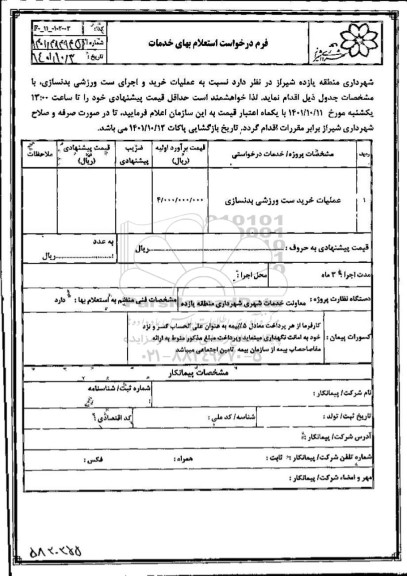 فرم درخواست استعلام بهای خدمات
۱۴۰۱/۱۰/۳
شهرداری منطقه یازده شیراز در نظر دارد نسبت به عملیات خرید و اجرای ست ورزشی بدنسازی، با
مشخصات جدول ذیل اقدام نماید. لذا خواهشمند است حداقل قیمت پیشنهادی خود را تا ساعت ۱۳:۰۰
یکشنبه مورخ ۱۴۰۱/۱۰/۱۱ با یکماه اعتبار قیمت به این سازمان اعلام فرمایید، تا در صورت صرفه و صلاح
شهرداری شیراز برابر مقررات اقدام گردد. تاریخ بازگشایی پاکات ۱۴۰۱/۱۰/۱۲ می باشد.
ردیف مشخصات پروژه/ خدمات درخواستی قیمت برآورد اولیه (ریال) ضریب پیشنهادی قیمت پیشنهادی (ریال) ملاحظات
۱ عملیات خرید ست ورزشی بدنسازی ۴/۰۰۰/۰۰۰/۰۰۰
قیمت پیشنهادی به حروف : ریال به عدد ریال
مدت اجرا : ۳ ماه محل اجرا :
دستگاه نظارت پروژه : معاونت خدمات شهری شهرداری منطقه یازده مشخصات فنی منضم به استعلام بها : دارد
کسورات پیمان : کارفرما از هر پرداخت معادل ۵٪ بیمه به عنوان علی الحساب کسر و نزد
خود به امانت نگهداری مینماید وپرداخت مبلغ مذکور منوط به ارائه
مفاصاحساب بیمه از سازمان بیمه تامین اجتماعی میباشد
مشخصات پیمانکار
نام شرکت/ پیمانکار : شماره ثبت/ شناسنامه
تاریخ ثبت/ تولد : شناسه/ کد ملی : کد اقتصادی
آدرس شرکت/ پیمانکار :
شماره تلفن شرکت/ پیمانکار : ثابت : همراه : فکس :
مهر و امضاء شرکت/ پیمانکار :
۵۸۲۰۲۷۵